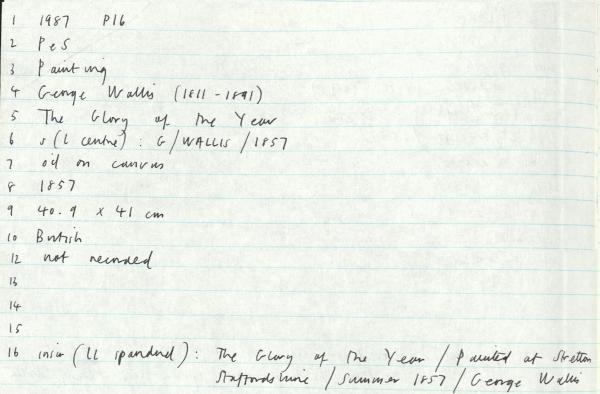 1 1987 P16
2 P & S
3 Painting
4 George Wallis (1811-1891)
5 The Glory of the Year
6 s (l centre) : G/WALLIS/1857
7 oil on canvas
8 1857
9 40.9 x 41 cm
10 British
12 not recorded
13
14
15
16 inscr (LL spandrel) : The Glory of the Year / Painted at Stretton
Staffordshire / Summer 1857 / George Wallis